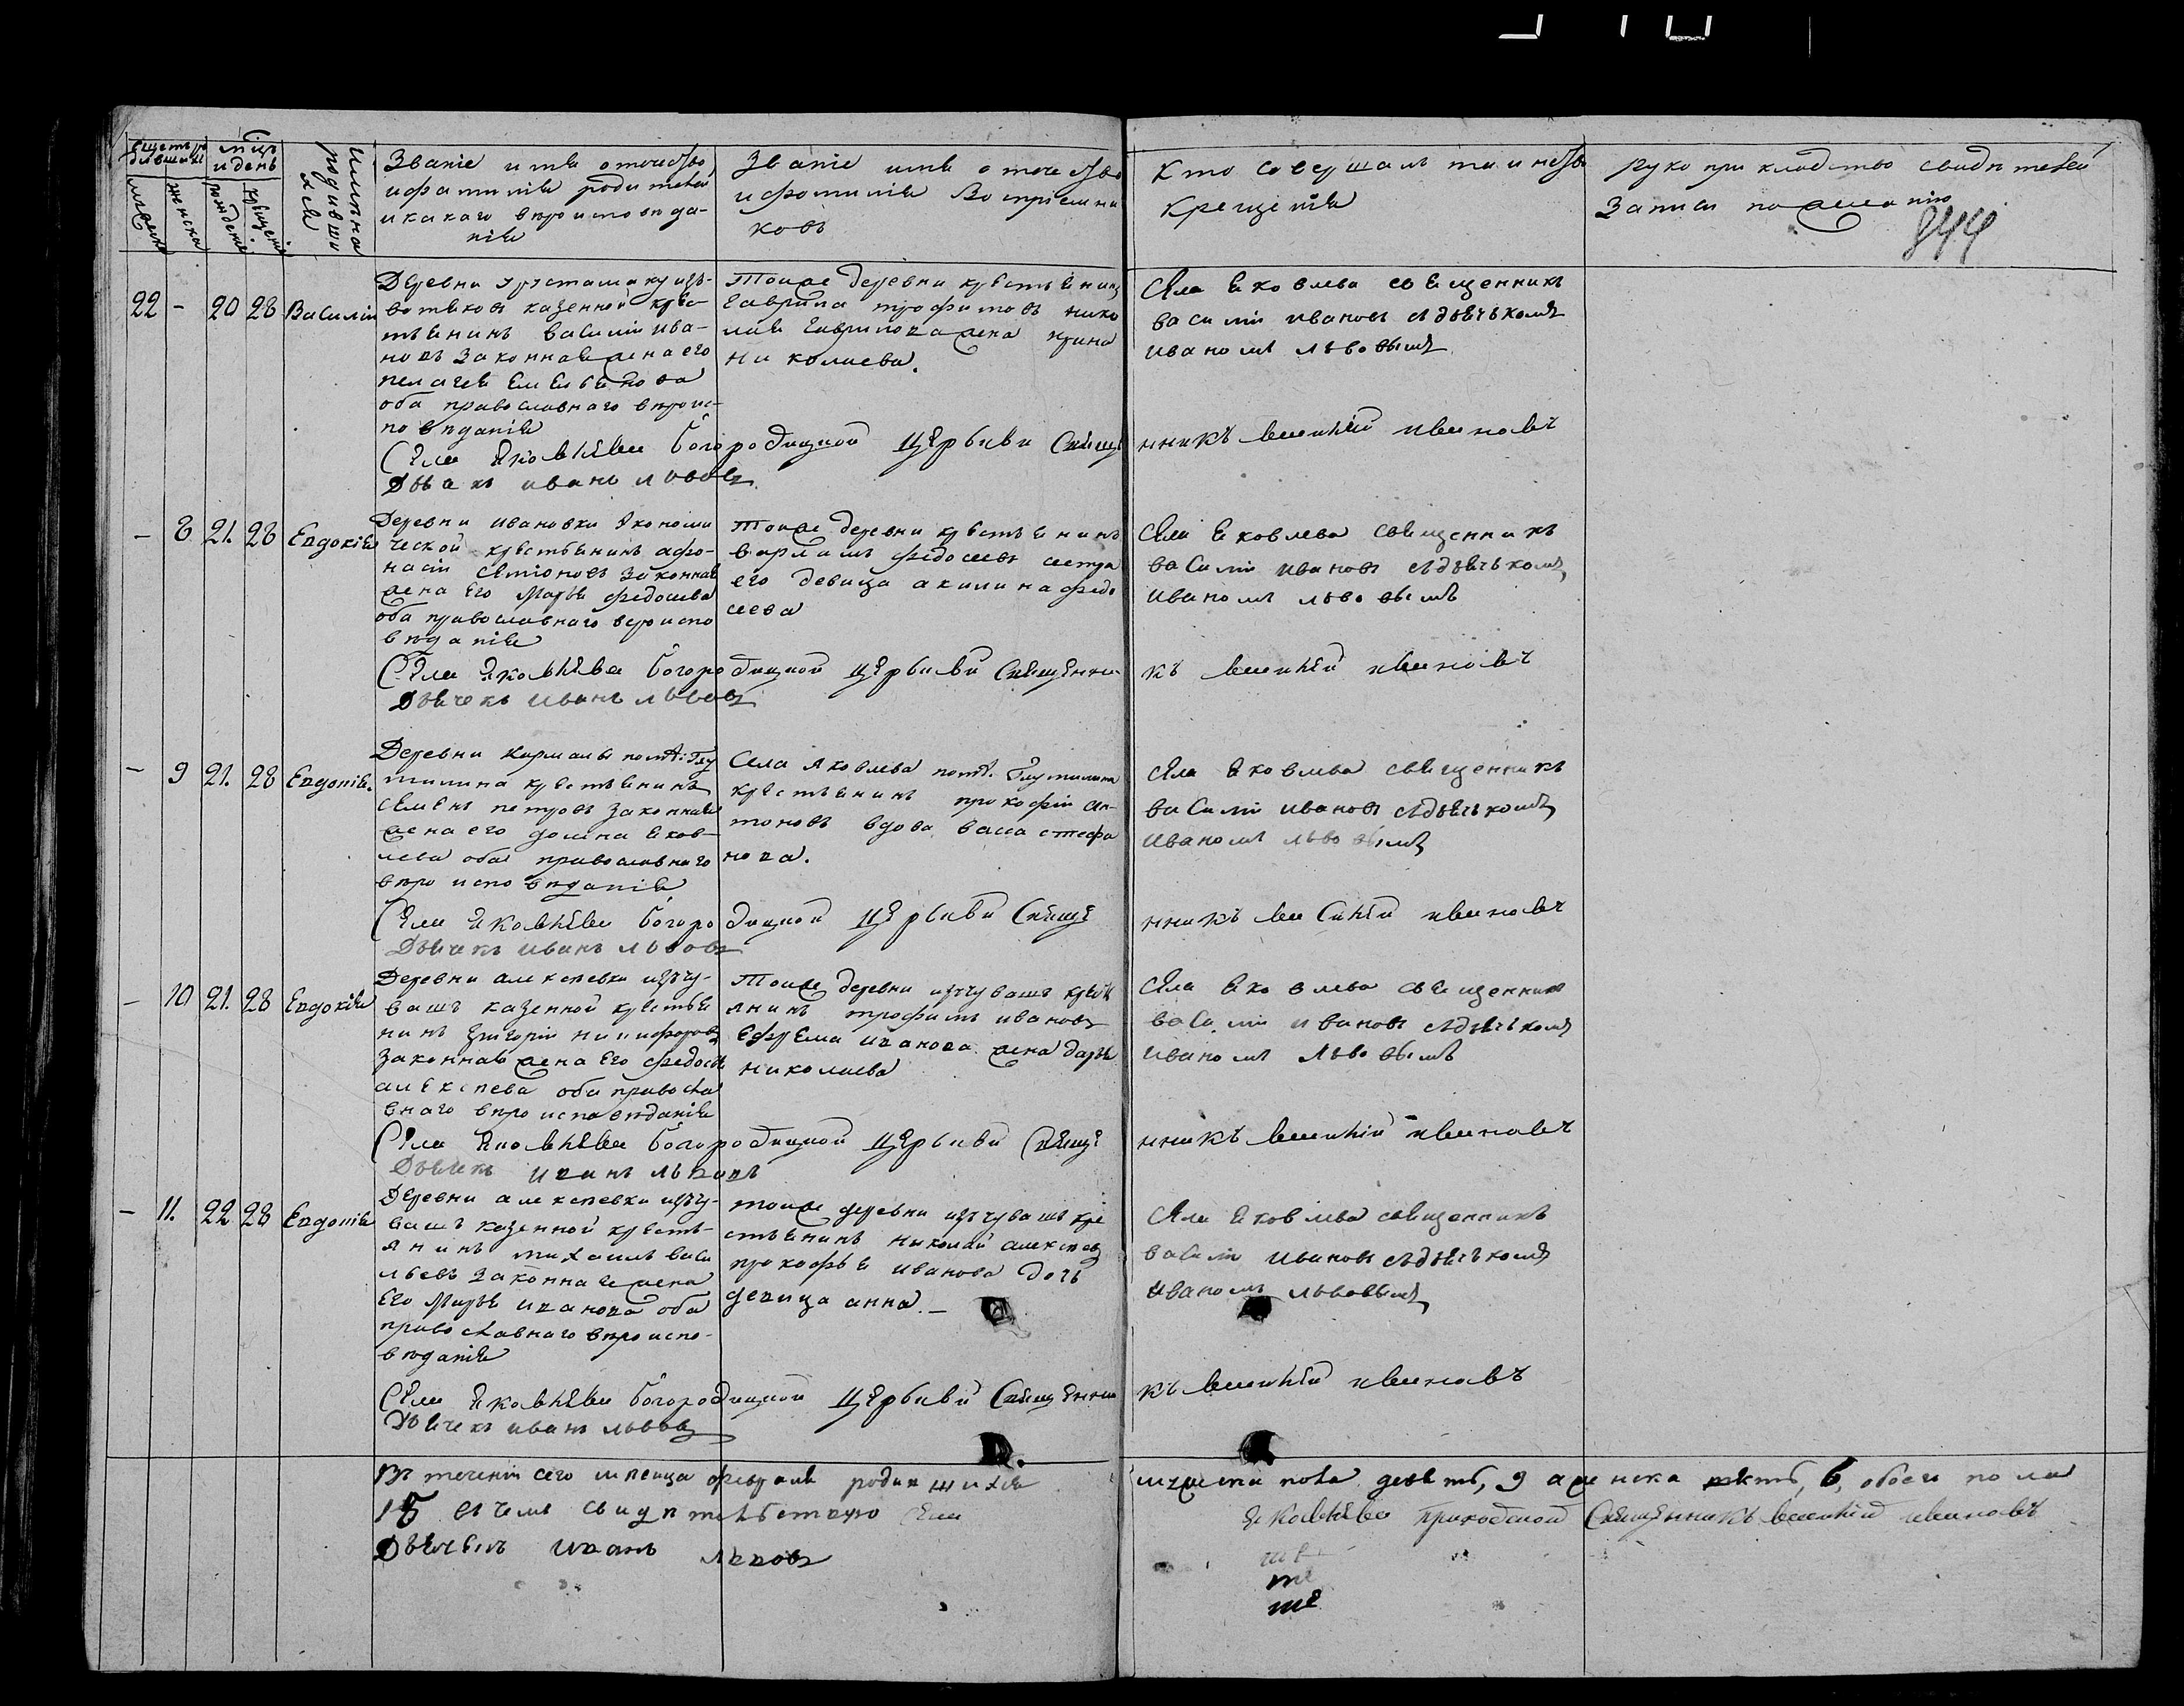 Щетъ ро
дившихъ
мужеска
женска
мцъ
и день
рожденіе
крещеніе
имена
родивши
хся
Званіе имя отечество
и фамилія родителей
и какаго вероисповѣда-
нія
Званіе имя отечество
и фамилія Восприемни
ковъ
Кто совершалъ таинство
крещенія
рукоприкладство свидѣтелей
записи по желанію
844
22 - 20 28 Василій
Деревни изъ
вотяковъ казенной крес-
тьянинъ василій ива-
новъ законная жена его
пелагея Емельянова
оба православнаго вероис-
повѣданія
тойже деревни крестьянинъ
гаврила трофимовъ нико
лая гаврилова жена ирина
николаева.
Села Яковлева священникъ
василій ивановъ съ дьячькомъ
иваномъ львовымъ
Села Яковлева богородицкой церькви Священникъ василий ивановъ
Дьячекъ иванъ львовъ
- 8 21. 28 Евдокія
Деревни ивановки Экономи
ческой крестьянинъ афо-
насій законная
жена Его Марья федосеева
оба православнаго вероиспо
вѣданія
тойже деревни крестьянинъ
варламъ федосеевъ сестра
его девица акилина федо
сеева
Села Яковлева священникъ
василій ивановъ съ дьячькомъ
иваномъ львовымъ
Села Яковлева богородицкой церькви Священникъ василий ивановъ
Дьячекъ иванъ львовъ
- 9 21. 28 Евдокія.
Деревни помѣ: Глу
тилина крестьянинъ
семенъ петровъ законная
жена его домна яков-
лева оба православнаго
вероисповѣданія
Села яковлева помѣ. Глутилина
крестьянинъ прокофій ан-
тоновъ вдова васса стефа
нова.
Села Яковлева священникъ
василій ивановъ съ дьячькомъ
иваномъ львовымъ
Села Яковлева богородицкой церькви Священникъ василій ивановъ
Дьячекъ иванъ львовъ
- 10 21. 28 Евдокія
Деревни алексѣевки изъ чу-
вашъ казенной крестья
нинъ григорій никифоровъ
законная жена Его федосья
алексѣева оба правосла
внаго вероисповѣданія
Тойже деревни изъ чувашъ крест
янинъ трофимъ ивановъ
Ефрема иванова жена дарья
николаева
Села Яковлева священникъ
василій ивановъ съ дьячькомъ
иваномъ львовымъ
Села Яковлева богородицкой церькви Священникъ василій ивановъ
Дьячекъ иванъ львовъ
- 11. 22 28 Евдокія
Деревни алексѣевки изъ чу-
вашъ казенной кресть-
янинъ михаилъ васи
льевъ законная жена
Его Марья иванова оба
православнаго вероиспо-
вѣданія
тойже деревни изъ чувашъ кре
стьянинъ николай алексѣевъ
прокофья иванова дочь
девица анна. -
Села Яковлева священникъ
василій ивановъ съ дьячькомъ
иваномъ львовымъ
Села Яковлева богородицкой церькви Священникъ василий ивановъ
Дьячекъ иванъ львовъ
Въ теченіи сего мѣсяца февраля родившихся мужеска пола девять, 9 а женска 6, обоего пола
15 въ чемъ свидѣтельствую Села Яковлева приходской Священникъ василій ивановъ
Дьячекъ иванъ львовъ